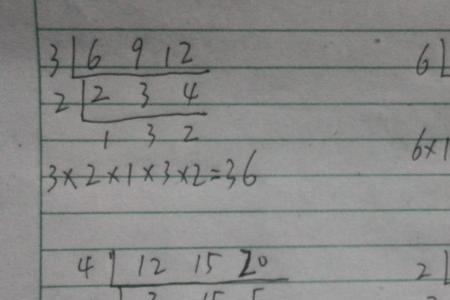 3 6 9 12
2 2 3 4
1 3 2
3×2×1×3×2=36
4 12 15 20
6
6×1
2